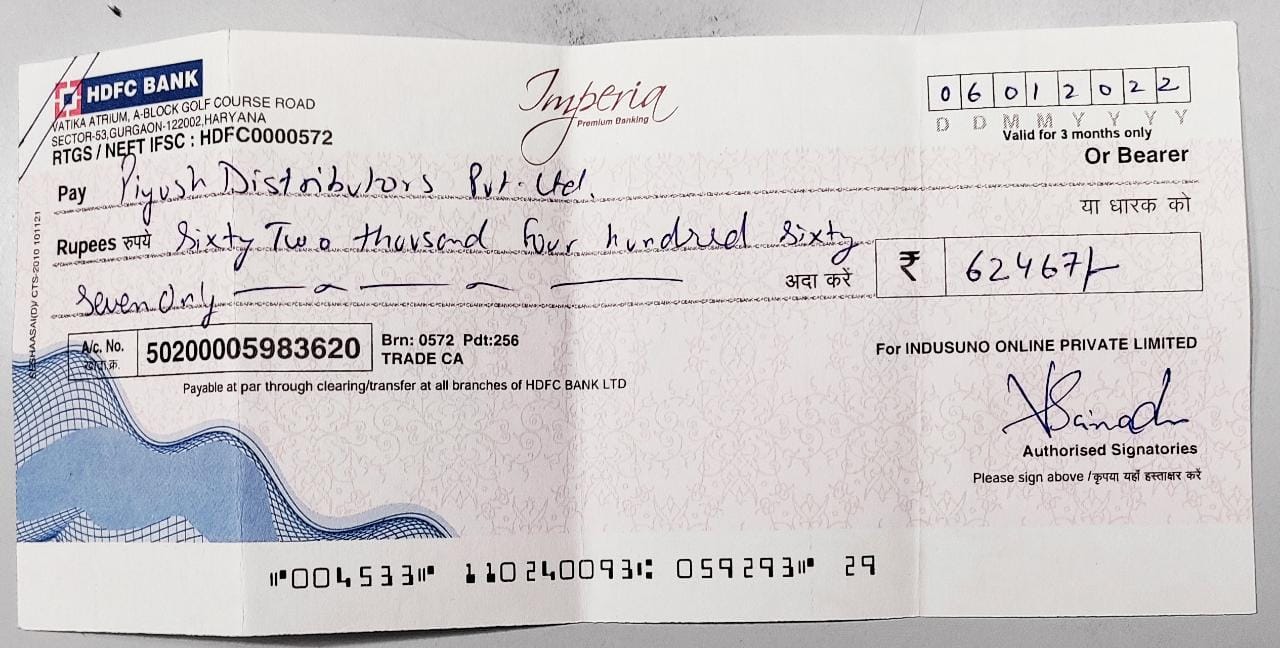 HDFC BANK
VATIKA ATRIUM, A-BLOCK GOLF COURSE ROAD
SECTOR-53,GURGAON-122002,HARYANA
RTGS / NEFT IFSC : HDFC0000572
Imperia
Premium Banking
06012022
D D M M Y Y Y Y
Valid for 3 months only
Pay Piyush Distributors Pvt. Ltd. Or Bearer
या धारक को
Rupees रुपये Sixty Two thousand four hundred Sixty
Seven Only अदा करें ₹ 62467/-
A/c. No. 50200005983620 Brn: 0572 Pdt:256
खाता क्र. TRADE CA
Payable at par through clearing/transfer at all branches of HDFC BANK LTD
For INDUSUNO ONLINE PRIVATE LIMITED
Authorised Signatories
Please sign above /कृपया यहाँ हस्ताक्षर करें
⑈004533⑈ 110240093⑆ 059293⑈ 29
CTS-2010 101121